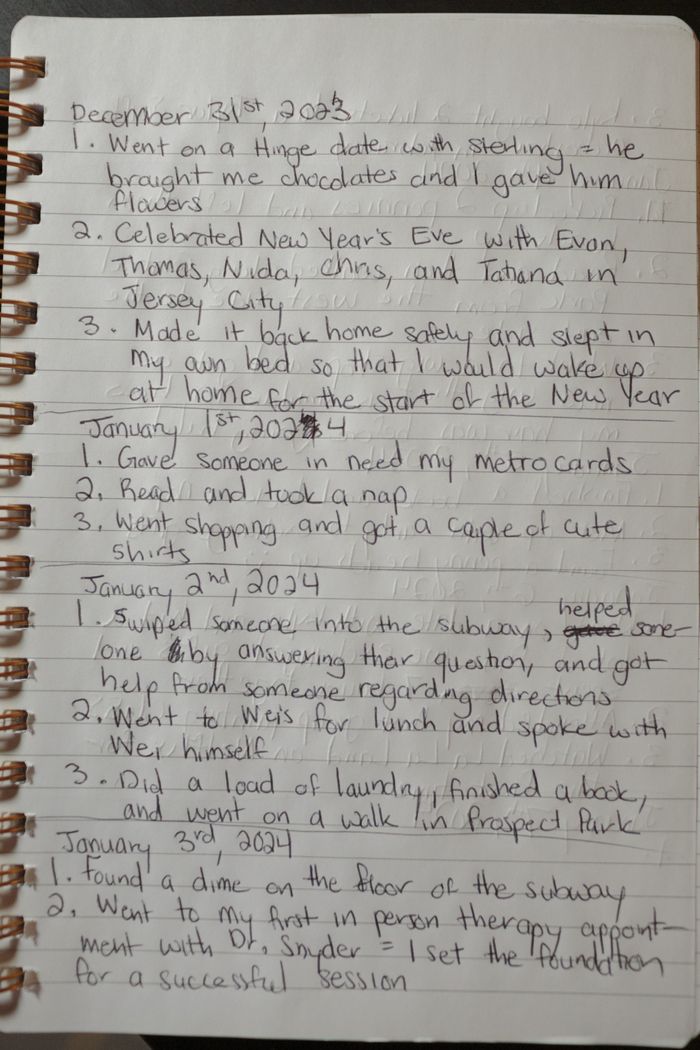 December 31st, 2023
1. Went on a Hinge date with Sterling = he
brought me chocolates and I gave him
flowers
2. Celebrated New Year's Eve with Evan,
Thomas, Nida, Chris, and Tatiana in
Jersey City
3. Made it back home safely and slept in
my own bed so that I would wake up
at home for the start of the New Year
January 1st, 2024
1. Gave someone in need my metro cards
2. Read and took a nap
3. Went shopping and got a couple of cute
shirts
January 2nd, 2024
1. Swiped someone into the subway, helped some-
one by answering their question, and got
help from someone regarding directions
2. Went to Wei's for lunch and spoke with
Wei himself
3. Did a load of laundry, finished a book,
and went on a walk in Prospect Park
January 3rd, 2024
1. Found a dime on the floor of the subway
2. Went to my first in person therapy appoint-
ment with Dr. Snyder = I set the foundation
for a successful session